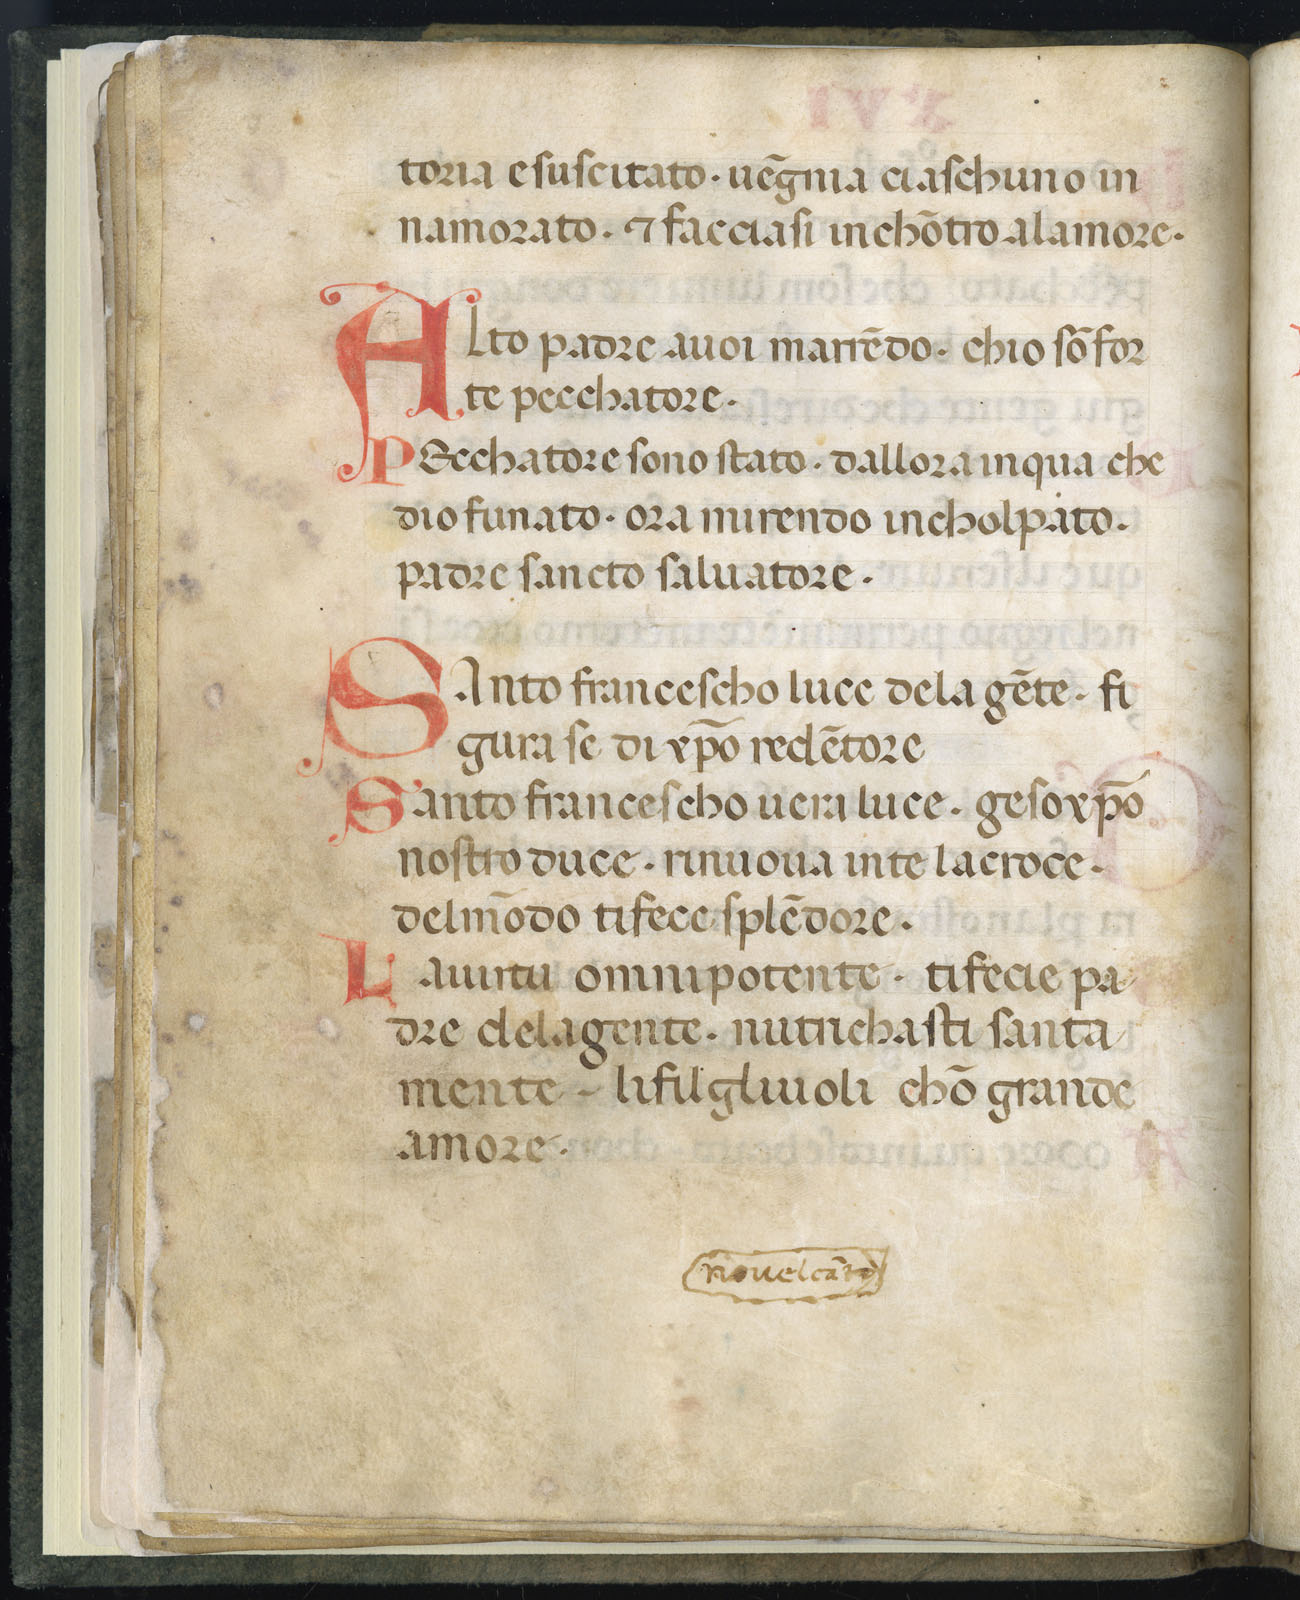 toria e suscitato · uēgnia ciaschuno in
namorato · ⁊ facciasi inchōtro alamore ·
ALto padre auoi marrēdo · chio sō for
te pecchatore ·
PEcchatore sono stato · dallora inqua che
dio fu nato · ora mi rendo incholpato ·
padre sancto saluatore ·
SAnto francescho luce dela gēte · fi
gura se di xp̄o redētore
Santo francescho uera luce · geso xp̄o
nostro duce · rinuoua in te la croce ·
del mōdo ti fece splēdore ·
La uirtu omnipotente · ti fecie pa
dre dela gente · nutrichasti santa
mente - li filgliuoli chō grande
amore ·
nouel cāto